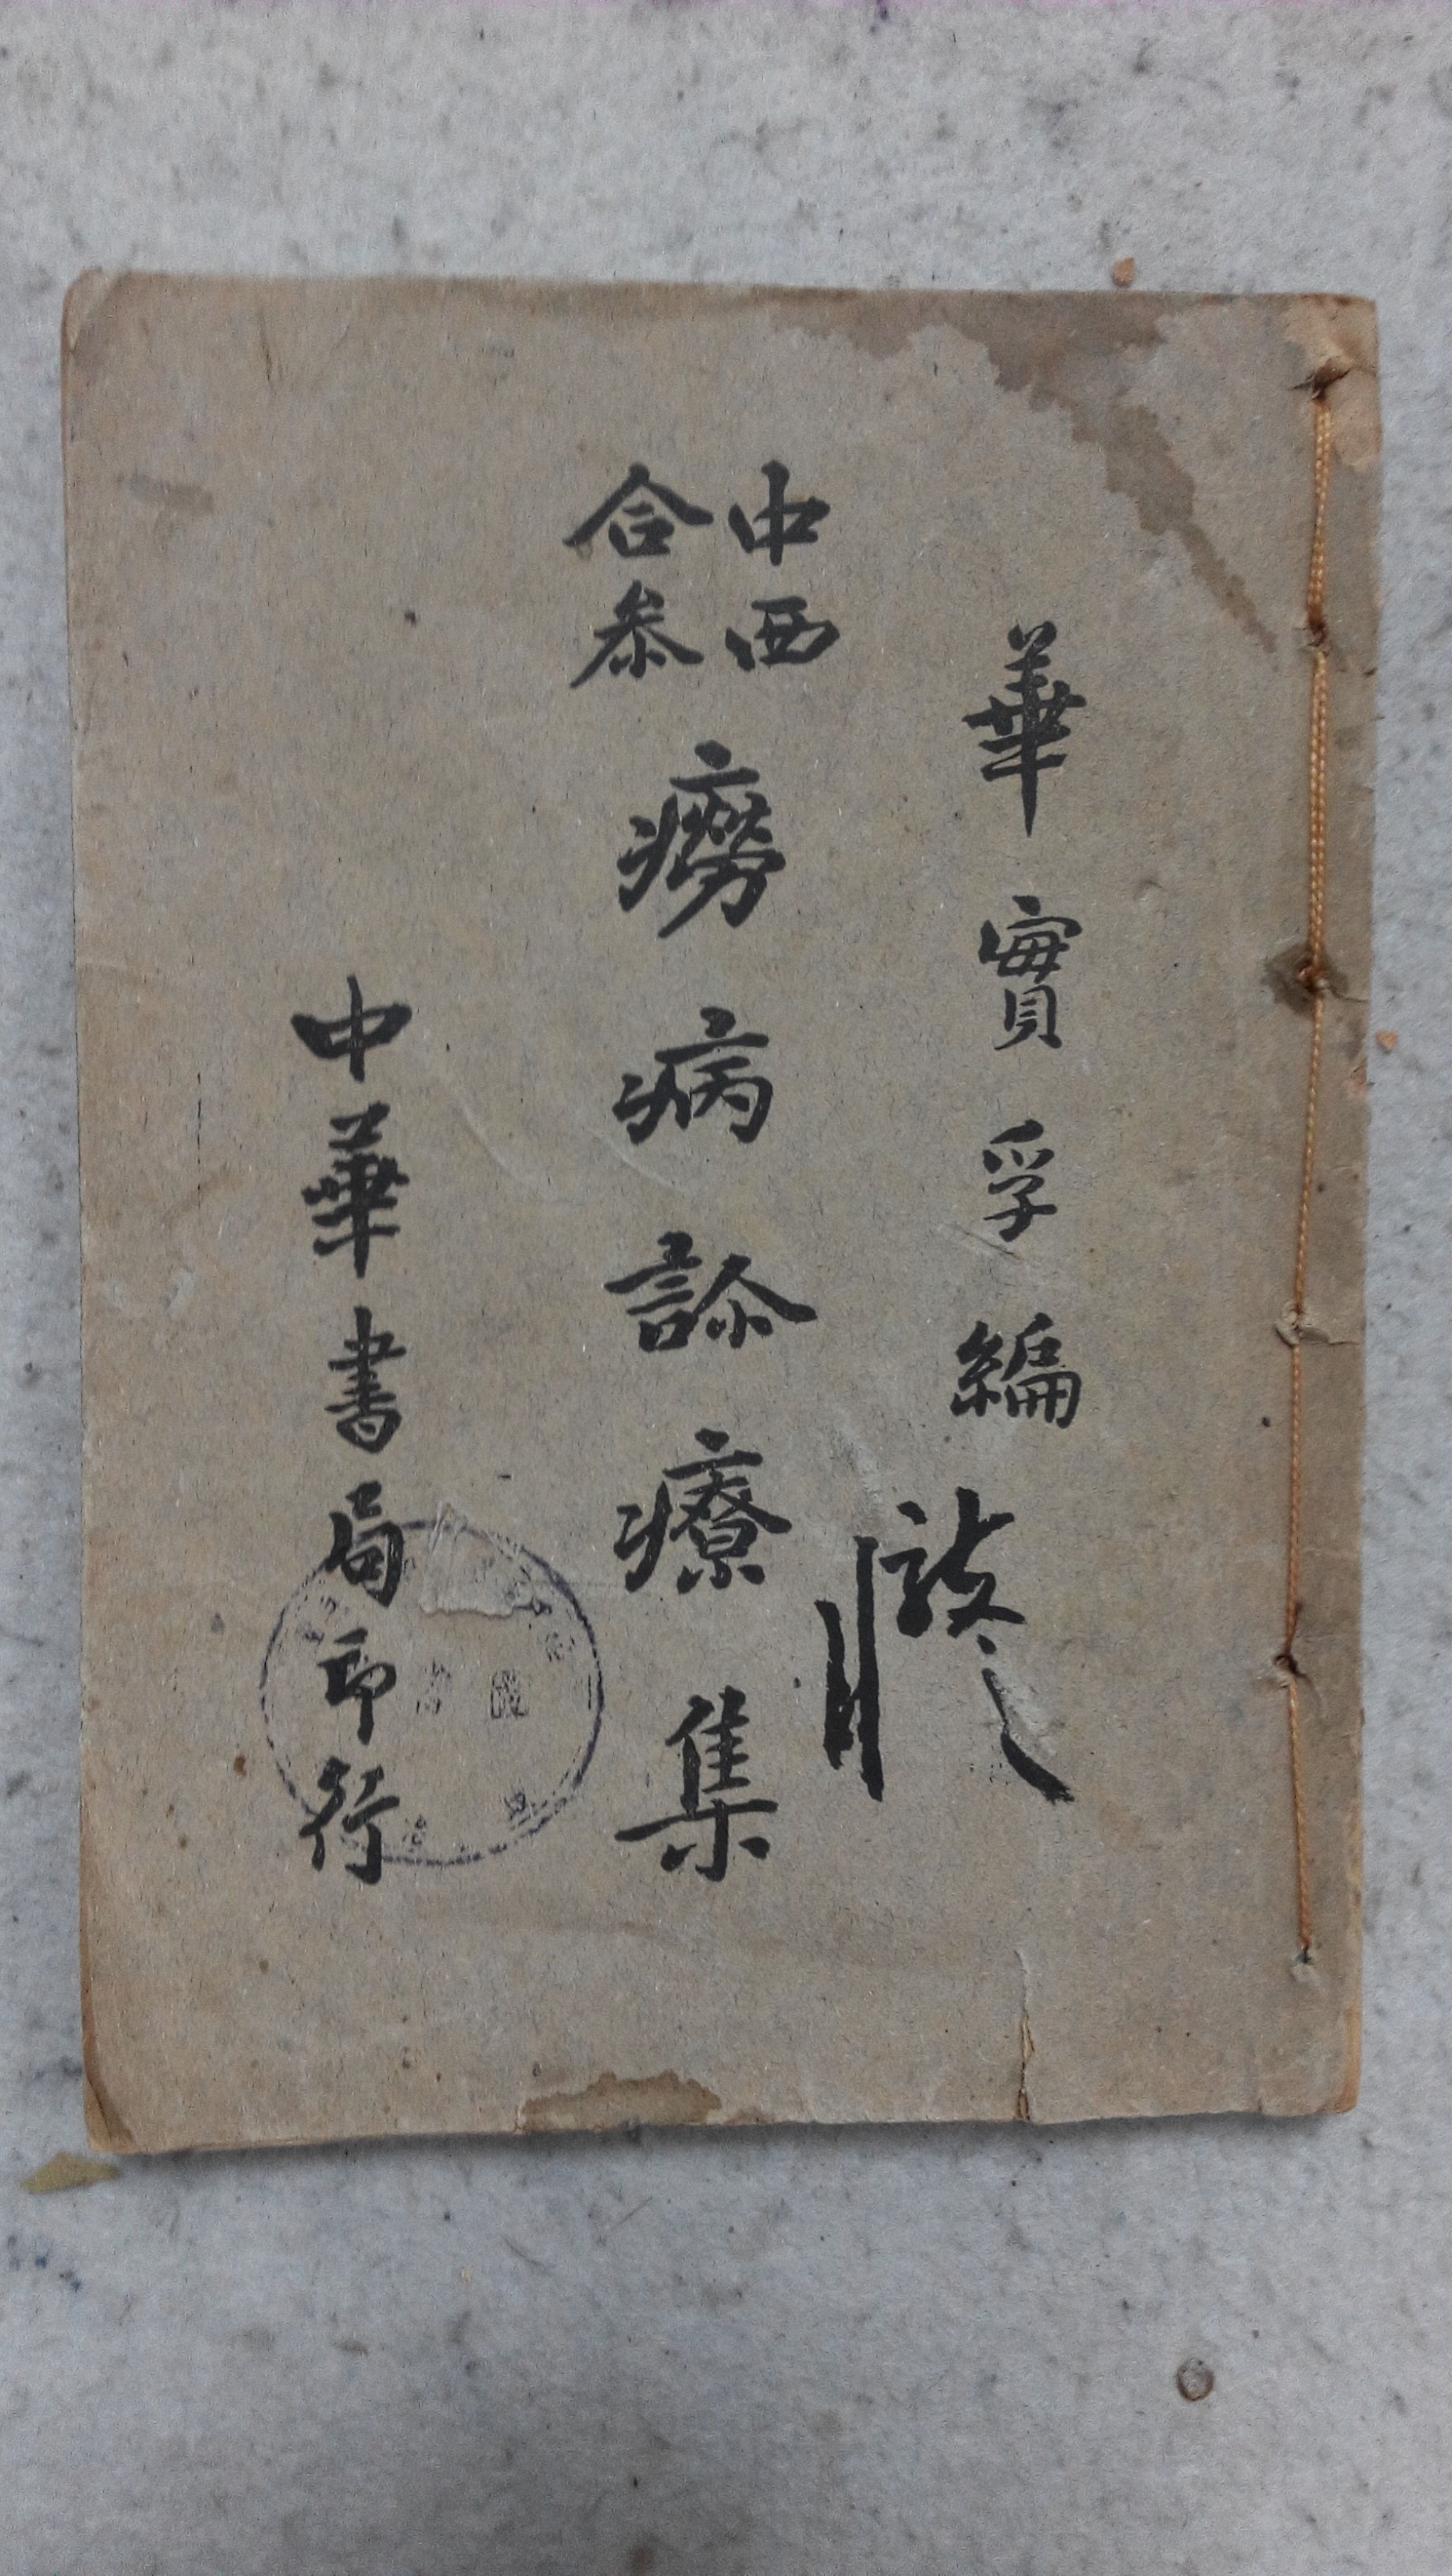 華實孚編
中西
合参
癆病診療集
中華書局印行